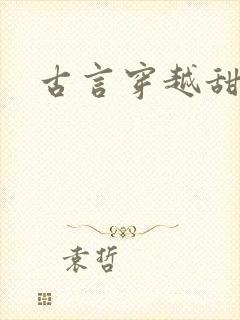 古言穿越甜
袁哲